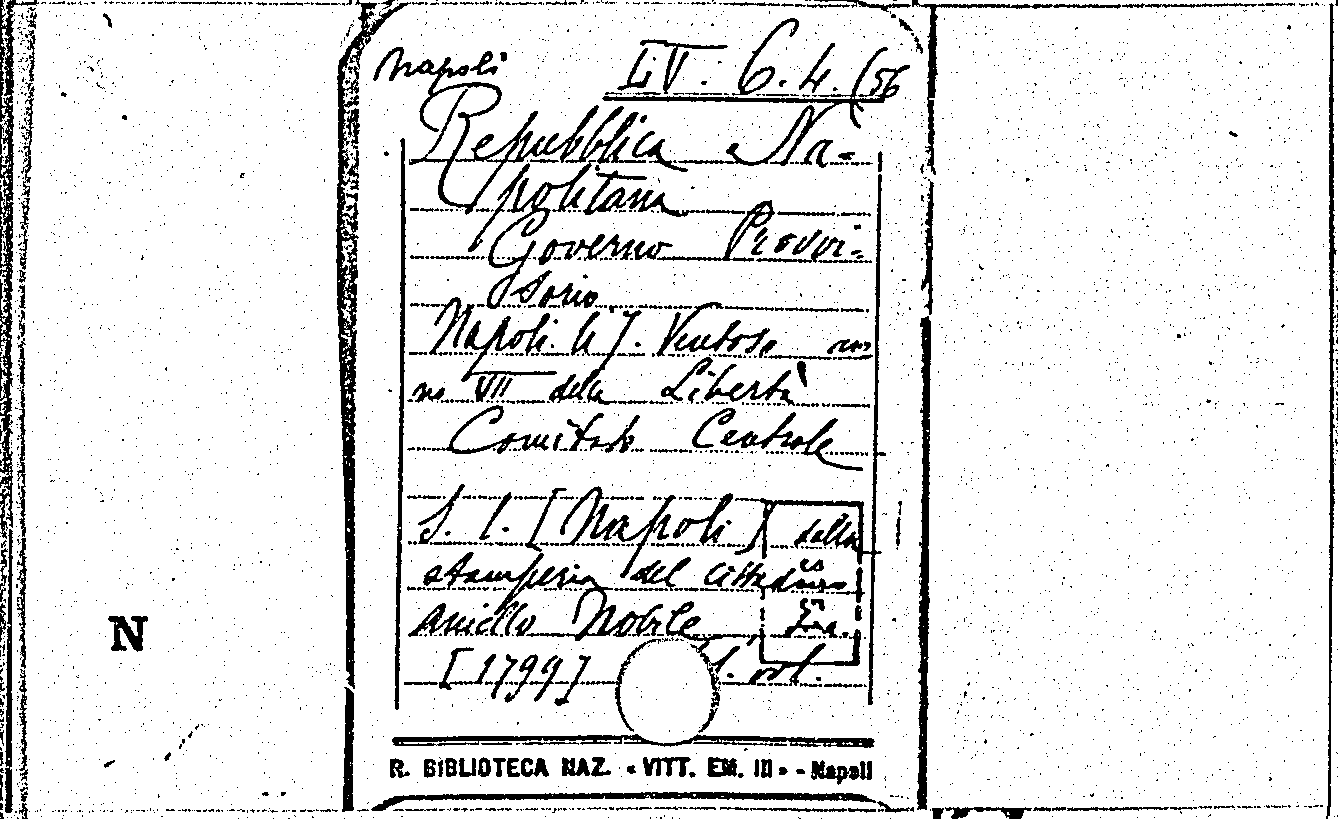 Napoli L.V. 6.4.(56
Repubblica Na-
politana
Governo Provvi-
sorio
Napoli li 7. Ventoso an
no VII della Libertà
Comitato Centrale
S. l. [Napoli] dalla
stamperia del cittadino
Aniello Nobile,
[1799] f. vol.
N
R. BIBLIOTECA NAZ. « VITT. EM. III » - Napoli